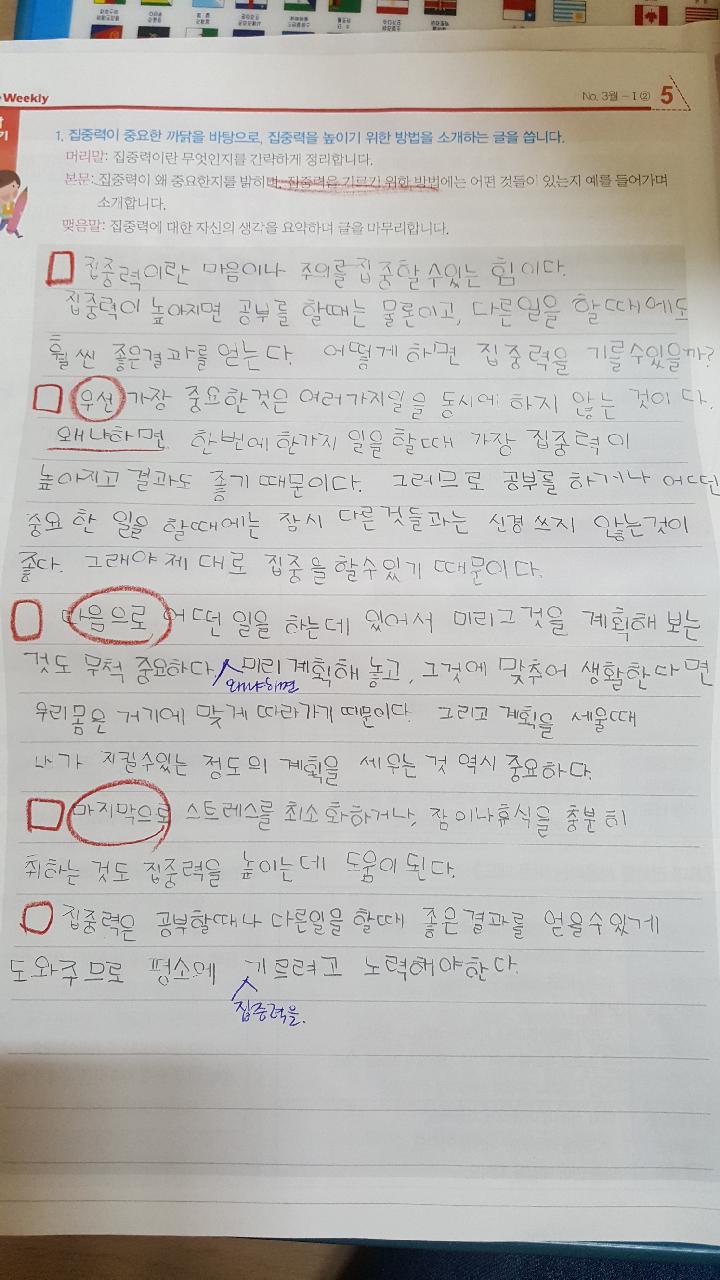 Weekly
No. 3월 - I ② 5
1. 집중력이 중요한 까닭을 바탕으로, 집중력을 높이기 위한 방법을 소개하는 글을 씁니다.
머리말: 집중력이란 무엇인지를 간략하게 정리합니다.
본문: 집중력이 왜 중요한지를 밝히며, 집중력을 기르기 위한 방법에는 어떤 것들이 있는지 예를 들어가며
소개합니다.
맺음말: 집중력에 대한 자신의 생각을 요약하며 글을 마무리합니다.
집중력이란 마음이나 주의를 집중할 수있는 힘이다.
집중력이 높아지면 공부를 할때는 물론이고, 다른일을 할때에도
훨씬 좋은결과를 얻는다. 어떻게 하면 집중력을 기를수있을까?
우선 가장 중요한것은 여러가지일을 동시에 하지 않는 것이다.
왜냐하면 한번에 한가지 일을 할때 가장 집중력이
높아지고 결과도 좋기 때문이다. 그러므로 공부를 하거나 어떤
중요한 일을 할때에는 잠시 다른것들과는 신경 쓰지 않는것이
좋다. 그래야 제대로 집중을 할수있기 때문이다.
다음으로 어떤 일을 하는데 있어서 미리그것을 계획해 보는
것도 무척 중요하다. 미리 계획해 놓고, 그것에 맞추어 생활한다면
왜냐하면
우리몸은 거기에 맞게 따라가기 때문이다. 그리고 계획을 세울때
내가 지킬수있는 정도의 계획을 세우는 것 역시 중요하다.
마지막으로 스트레스를 최소화하거나, 잠이나휴식을 충분히
취하는 것도 집중력을 높이는데 도움이 된다.
집중력은 공부할때나 다른일을 할때 좋은결과를 얻을수있게
도와주므로 평소에 기르려고 노력해야한다.
집중력을.